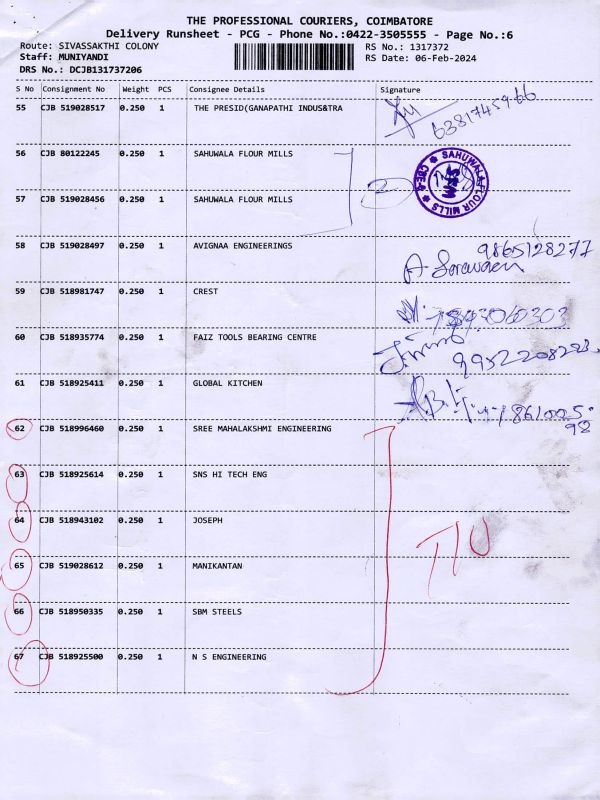 THE PROFESSIONAL COURIERS, COIMBATORE
Delivery Runsheet - PCG - Phone No.:0422-3505555 - Page No.:6
Route: SIVASSAKTHI COLONY
RS No.: 1317372
Staff: MUNIYANDI
RS Date: 06-Feb-2024
DRS No.: DCJB131737206
S No Consignment No Weight PCS Consignee Details Signature
55 CJB 519028517 0.250 1 THE PRESID(GANAPATHI INDUS&TRA
6381745966
56 CJB 80122245 0.250 1 SAHUWALA FLOUR MILLS
SAHUWALA FLOUR MILLS ★ CBE-8 ★
57 CJB 519028456 0.250 1 SAHUWALA FLOUR MILLS
2
58 CJB 519028497 0.250 1 AVIGNAA ENGINEERINGS
9865128277
59 CJB 518981747 0.250 1 CREST
60 CJB 518935774 0.250 1 FAIZ TOOLS BEARING CENTRE
61 CJB 518925411 0.250 1 GLOBAL KITCHEN
62 CJB 518996460 0.250 1 SREE MAHALAKSHMI ENGINEERING
63 CJB 518925614 0.250 1 SNS HI TECH ENG
64 CJB 518943102 0.250 1 JOSEPH
65 CJB 519028612 0.250 1 MANIKANTAN
66 CJB 518950335 0.250 1 SBM STEELS
67 CJB 518925500 0.250 1 N S ENGINEERING